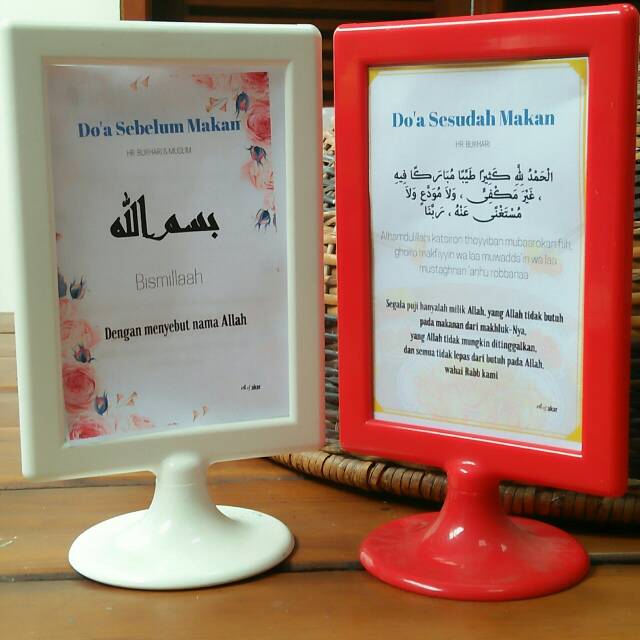 Do'a Sebelum Makan
HR. BUKHARI & MUSLIM
بسم الله
Bismillaah
Dengan menyebut nama Allah
Do'a Sesudah Makan
HR. BUKHARI
الْحَمْدُ لِلَّهِ كَثِيرًا طَيِّبًا مُبَارَكًا فِيهِ
، غَيْرَ مَكْفِيٍّ ، وَلاَ مُوَدَّعٍ وَلاَ
مُسْتَغْنًى عَنْهُ ، رَبَّنَا
Alhamdulillahi katsiron thoyyiban mubaarokan fiih,
ghoiro makfiyyin wa laa muwadda'in wa laa
mustaghnan 'anhu robbanaa
Segala puji hanyalah milik Allah, yang Allah tidak butuh
pada makanan dari makhluk-Nya,
yang Allah tidak mungkin ditinggalkan,
dan semua tidak lepas dari butuh pada Allah,
wahai Rabb kami